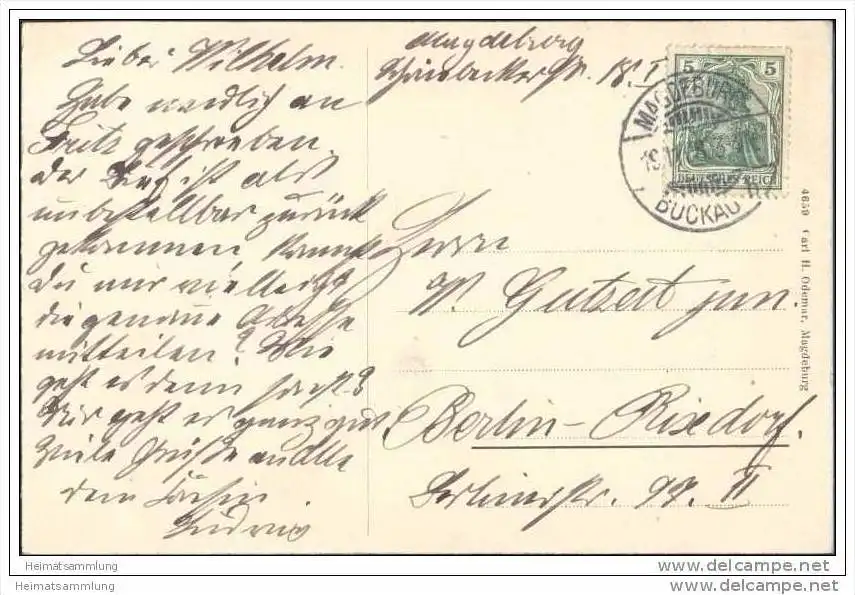 Magdeburg
18. I
Lieber Wilhelm.
Habe neulich an
Fritz geschrieben.
Der Brief ist als
unbestellbar zurück
gekommen, kannst
Du mir vielleicht
die genaue Adresse
mitteilen? Wie
geht es denn sonst?
Mir geht es ganz gut
Viele Grüße an Alle
Dein
Ludwig
5 5
DEUTSCHES REICH
MAGDEBURG
BUCKAU
Herrn
W. Gutzeit jun.
Berlin-Rixdorf.
Berlinerstr. 97. II
4659 Carl H. Odemar, Magdeburg
Heimatsammlung
Heimatsammlung
www.delcampe.net
www.delcampe.net